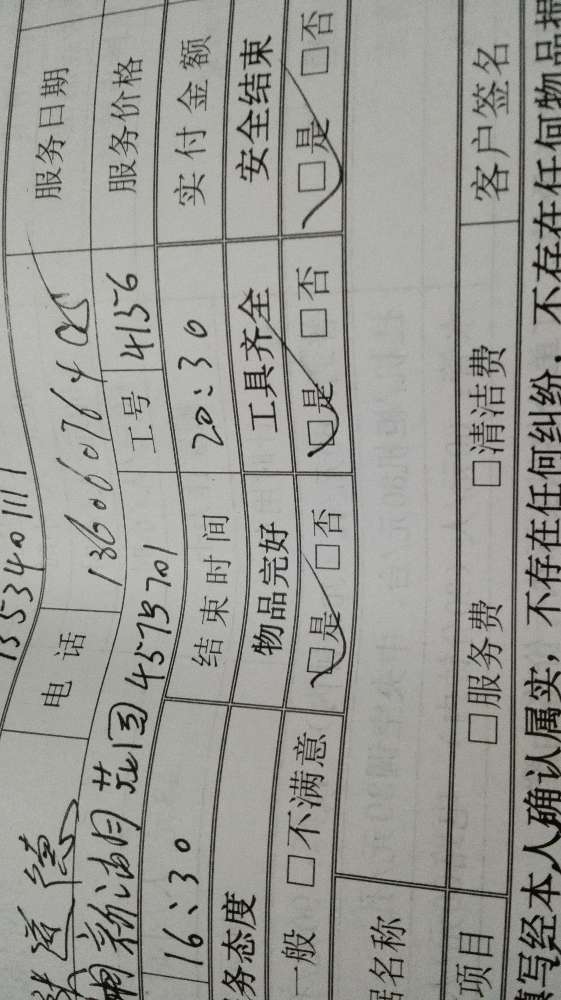 135340111
电话 13606076405 服务日期
花园45栋701 工号 4156 服务价格
16:30 结束时间 20:30 实付金额
务态度 物品完好 工具齐全 安全结束
一般 □不满意 □是 □否 □是 □否 □是 □否
名称
项目 □服务费 □清洁费 客户签名
填写经本人确认属实，不存在任何纠纷，不存在任何物品损